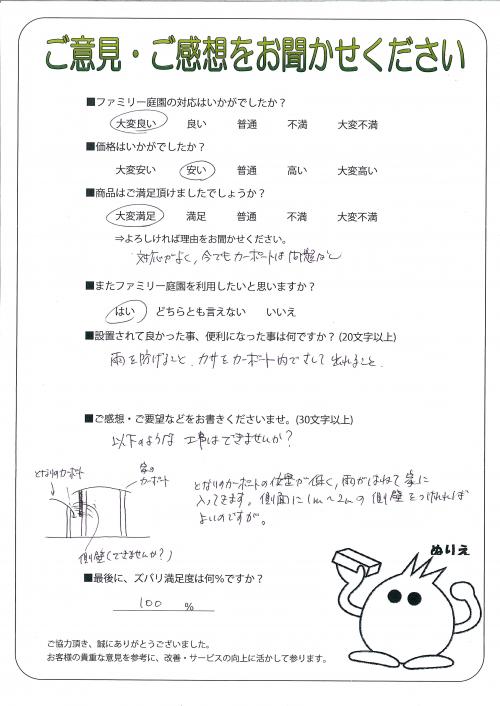 ご意見・ご感想をお聞かせください
■ファミリー庭園の対応はいかがでしたか？
大変良い 良い 普通 不満 大変不満
■価格はいかがでしたか？
大変安い 安い 普通 高い 大変高い
■商品はご満足頂けましたでしょうか？
大変満足 満足 普通 不満 大変不満
⇒よろしければ理由をお聞かせください。
対応がよく、今でもカーポートは問題なし
■またファミリー庭園を利用したいと思いますか？
はい どちらとも言えない いいえ
■設置されて良かった事、便利になった事は何ですか？(20文字以上)
雨を防げること、カサをカーポート内でさして出れること、
■ご感想・ご要望などをお書きくださいませ。(30文字以上)
以下のような工事はできませんか？
となりのカーポート
家のカーポート
側壁(できませんか？)
となりのカーポートの位置が低く、雨がはねて家に
入ってきます。側面に1m〜2mの側壁をつけれれば
よいのですが。
■最後に、ズバリ満足度は何％ですか？
100 ％
ぬりえ
ご協力頂き、誠にありがとうございました。
お客様の貴重な意見を参考に、改善・サービスの向上に活かして参ります。